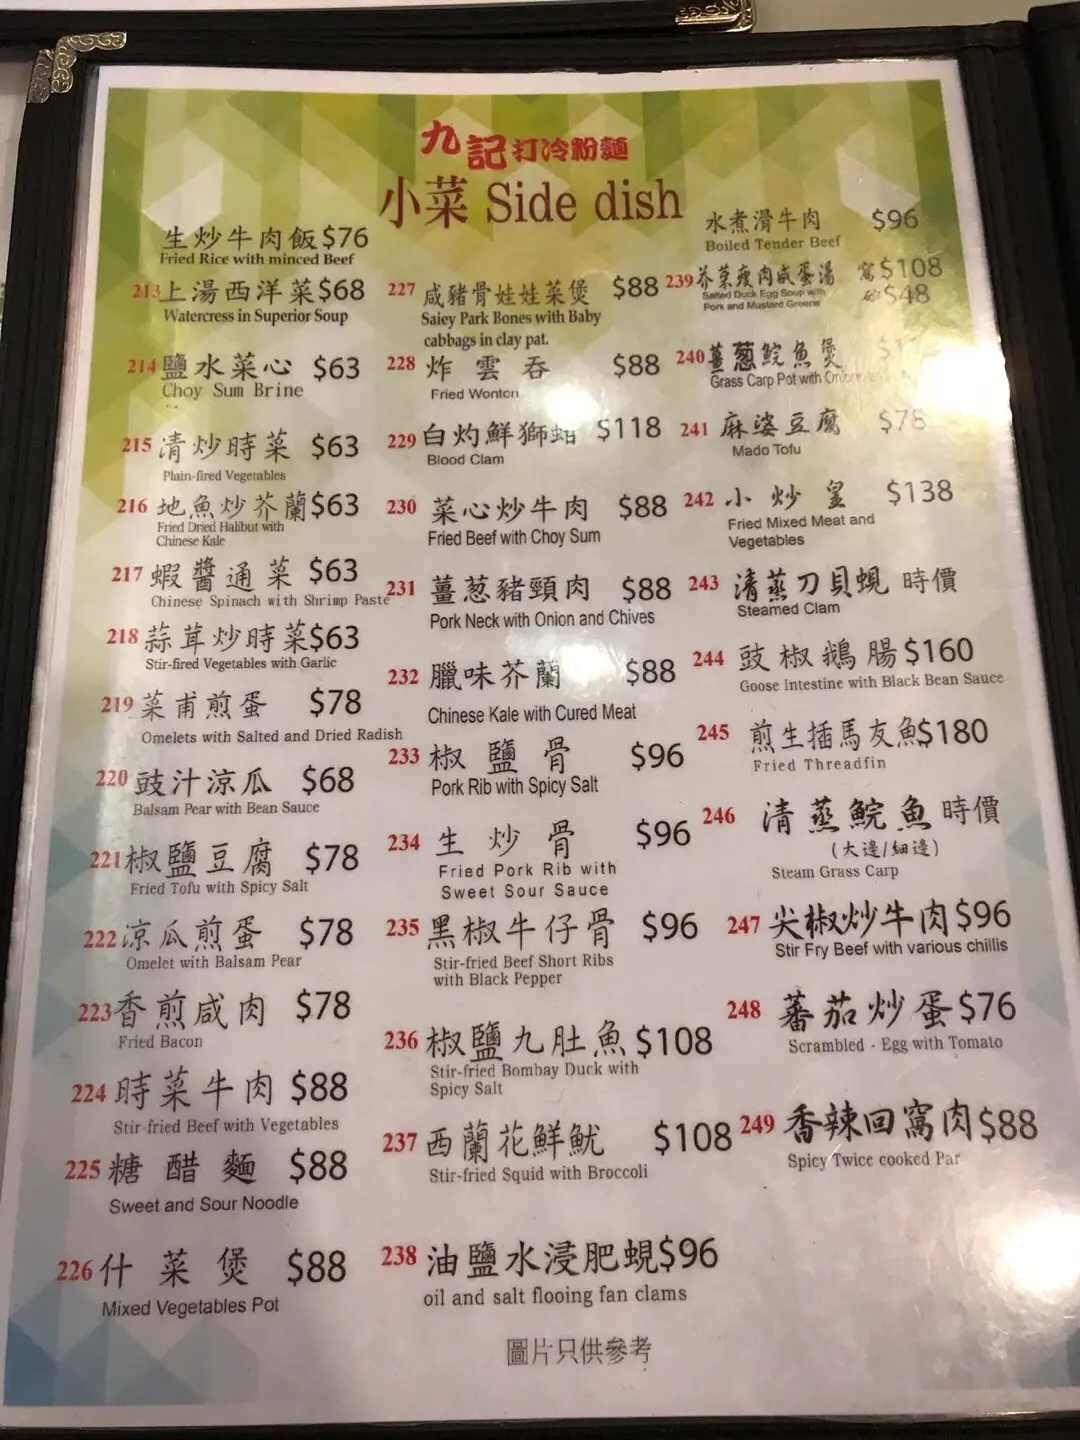 九記打冷粉麵
小菜 Side dish
生炒牛肉飯 $76
Fried Rice with minced Beef
213 上湯西洋菜 $68
Watercress in Superior Soup
214 鹽水菜心 $63
Choy Sum Brine
215 清炒時菜 $63
Plain-fired Vegetables
216 地魚炒芥蘭 $63
Fried Dried Halibut with
Chinese Kale
217 蝦醬通菜 $63
Chinese Spinach with Shrimp Paste
218 蒜茸炒時菜 $63
Stir-fired Vegetables with Garlic
219 菜甫煎蛋 $78
Omelets with Salted and Dried Radish
220 豉汁涼瓜 $68
Balsam Pear with Bean Sauce
221 椒鹽豆腐 $78
Fried Tofu with Spicy Salt
222 涼瓜煎蛋 $78
Omelet with Balsam Pear
223 香煎咸肉 $78
Fried Bacon
224 時菜牛肉 $88
Stir-fried Beef with Vegetables
225 糖醋麵 $88
Sweet and Sour Noodle
226 什菜煲 $88
Mixed Vegetables Pot
227 咸豬骨娃娃菜煲 $88
Saiey Park Bones with Baby
cabbags in clay pat.
228 炸雲吞 $88
Fried Wonton
229 白灼鮮獅蚶 $118
Blood Clam
230 菜心炒牛肉 $88
Fried Beef with Choy Sum
231 薑葱豬頸肉 $88
Pork Neck with Onion and Chives
232 臘味芥蘭 $88
Chinese Kale with Cured Meat
233 椒鹽骨 $96
Pork Rib with Spicy Salt
234 生炒骨 $96
Fried Pork Rib with
Sweet Sour Sauce
235 黑椒牛仔骨 $96
Stir-fried Beef Short Ribs
with Black Pepper
236 椒鹽九肚魚 $108
Stir-fried Bombay Duck with
Spicy Salt
237 西蘭花鮮魷 $108
Stir-fried Squid with Broccoli
238 油鹽水浸肥蜆 $96
oil and salt flooing fan clams
水煮滑牛肉 $96
Boiled Tender Beef
239 芥菜瘦肉咸蛋湯 窩 $108
砂 $48
Salted Duck Egg Soup with
Pork and Mustard Greens
240 薑葱鯇魚煲
Grass Carp Pot with
241 麻婆豆腐 $78
Mado Tofu
242 小炒皇 $138
Fried Mixed Meat and
Vegetables
243 清蒸刀貝蜆 時價
Steamed Clam
244 豉椒鵝腸 $160
Goose Intestine with Black Bean Sauce
245 煎生插馬友魚 $180
Fried Threadfin
246 清蒸鯇魚 時價
(大邊/細邊)
Steam Grass Carp
247 尖椒炒牛肉 $96
Stir Fry Beef with various chillis
248 蕃茄炒蛋 $76
Scrambled - Egg with Tomato
249 香辣回窩肉 $88
Spicy Twice cooked Par
圖片只供參考